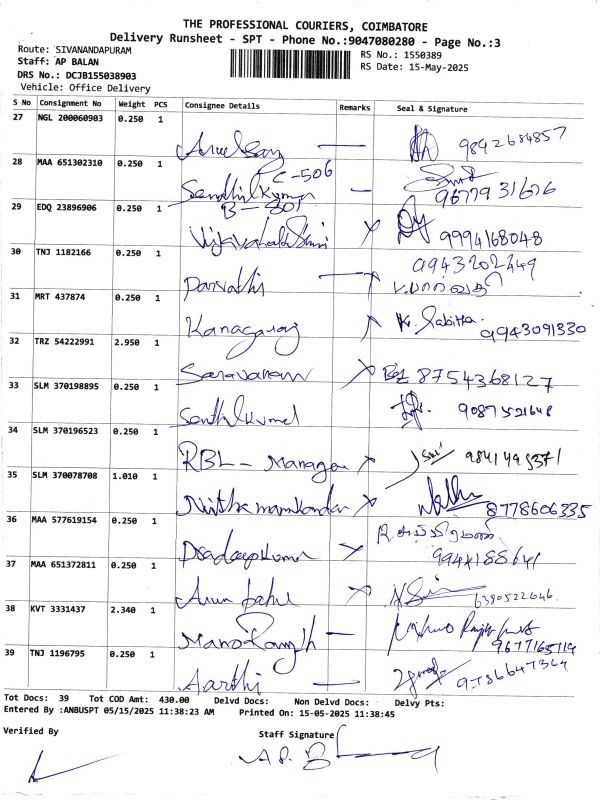 THE PROFESSIONAL COURIERS, COIMBATORE
Delivery Runsheet - SPT - Phone No.:9047080280 - Page No.:3
Route: SIVANANDAPURAM
RS No.: 1550389
Staff: AP BALAN
RS Date: 15-May-2025
DRS No.: DCJB155038903
Vehicle: Office Delivery
S No Consignment No Weight PCS Consignee Details Remarks Seal & Signature
27 NGL 200060903 0.250 1
9842684857
28 MAA 651302310 0.250 1
C-506
Sendhilkumar
9677931676
29 EDQ 23896906 0.250 1
B-501
9994168048
30 TNJ 1182166 0.250 1
9943202449
Parvathi
31 MRT 437874 0.250 1
Kanagaraj K. Sabitha 9943091330
32 TRZ 54222991 2.950 1
Saravanan 8754368127
33 SLM 370198895 0.250 1
Senthilkumar 9087521648
34 SLM 370196523 0.250 1
RBL - Manager
35 SLM 370078708 1.010 1
8778606335
36 MAA 577619154 0.250 1
Pradeepkumar
37 MAA 651372811 0.250 1
Arun 6380522646
38 KVT 3331437 2.340 1
Manoranjith
39 TNJ 1196795 0.250 1
Aarthi
Tot Docs: 39 Tot COD Amt: 430.00 Delvd Docs: Non Delvd Docs: Delvy Pts:
Entered By :ANBUSPT 05/15/2025 11:38:23 AM Printed On: 15-05-2025 11:38:45
Verified By
Staff Signature
AP. B